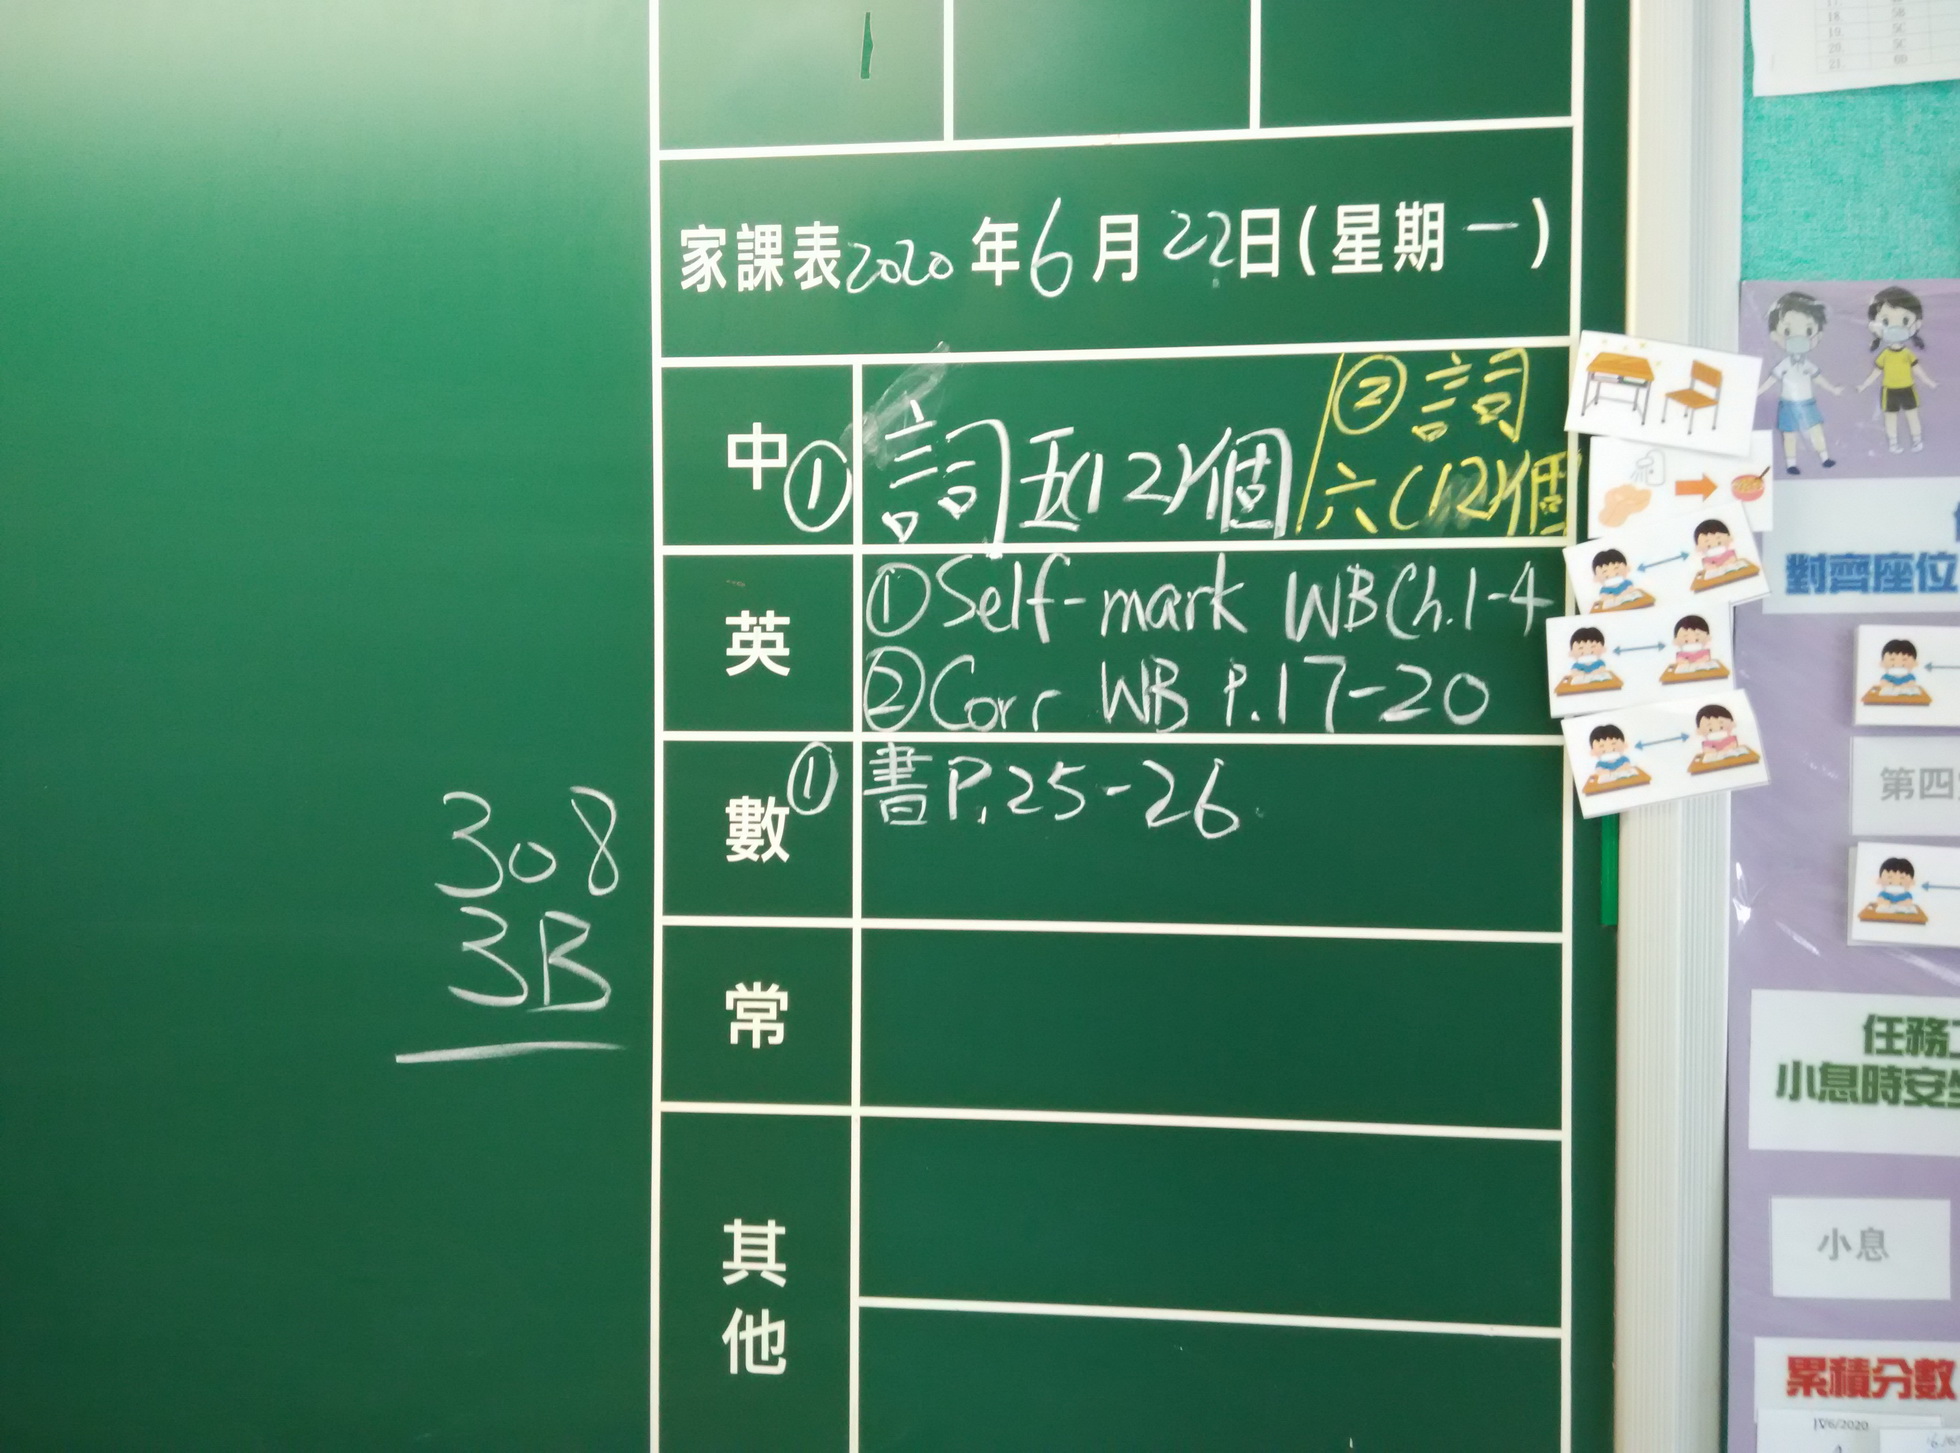 家課表2020年6月22日(星期一)
中① 詞五(12)個
②詞
六(12)個
英
①Self-mark WB Ch.1-4
②Corr WB P.17-20
數① 書P.25-26
常
其他
308
3B
對齊座位
第四
任務
小息時安
小息
累積分數